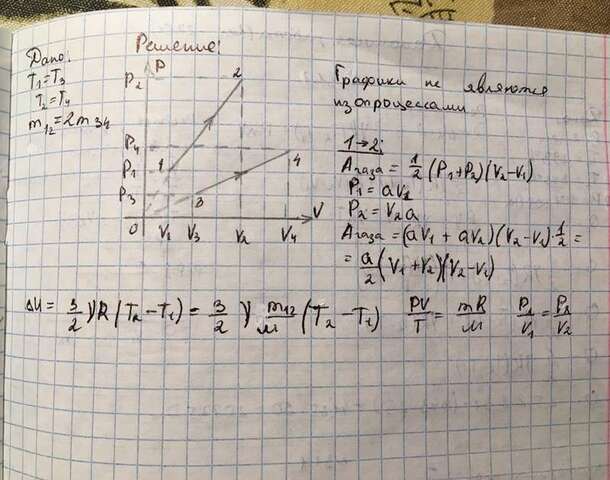 Дано:
T₁=T₃
T₂=T₄
m₁₂=2m₃₄
Решение:
P
P₂
P₄
P₁
P₃
0
1
2
3
4
V₁ V₃ V₂ V₄
V
Графики не являются
изопроцессами
1→2:
Aгаза = 1/2 (P₁+P₂)(V₂-V₁)
P₁ = aV₁
P₂ = V₂a
Aгаза = (aV₁ + aV₂)(V₂-V₁)·1/2 =
= a/2 (V₁+V₂)(V₂-V₁)
ΔU = 3/2 νR (T₂-T₁) = 3/2 ν m₁₂/M (T₂-T₁) PV/T = mR/M P₁/V₁ = P₂/V₂